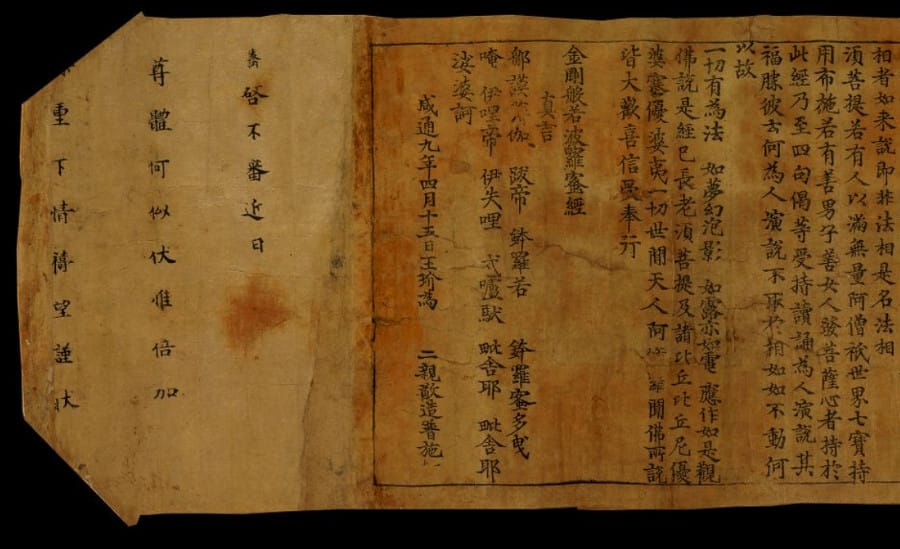 相者如来說即非法相是名法相
須菩提若有人以滿無量阿僧祇世界七寶持
用布施若有善男子善女人發菩薩心者持於
此經乃至四句偈等受持讀誦為人演說其
福勝彼云何為人演說不取於相如如不動何
以故
一切有為法 如夢幻泡影 如露亦如電 應作如是觀
佛說是經已長老須菩提及諸比丘比丘尼優
婆塞優婆夷一切世間天人阿 羅聞佛所說
皆大歡喜信受奉行
金剛般若波羅蜜經
真言
那謨 伽 跋帝 鉢羅若 鉢羅蜜多曳
唵 伊哩帝 伊失哩 戍嚧馱 毗舍耶 毗舍耶
娑婆訶
咸通九年四月十五日王玠為 二親敬造普施
啓不審近日
尊體何似伏惟倍加
重下情禱望謹状